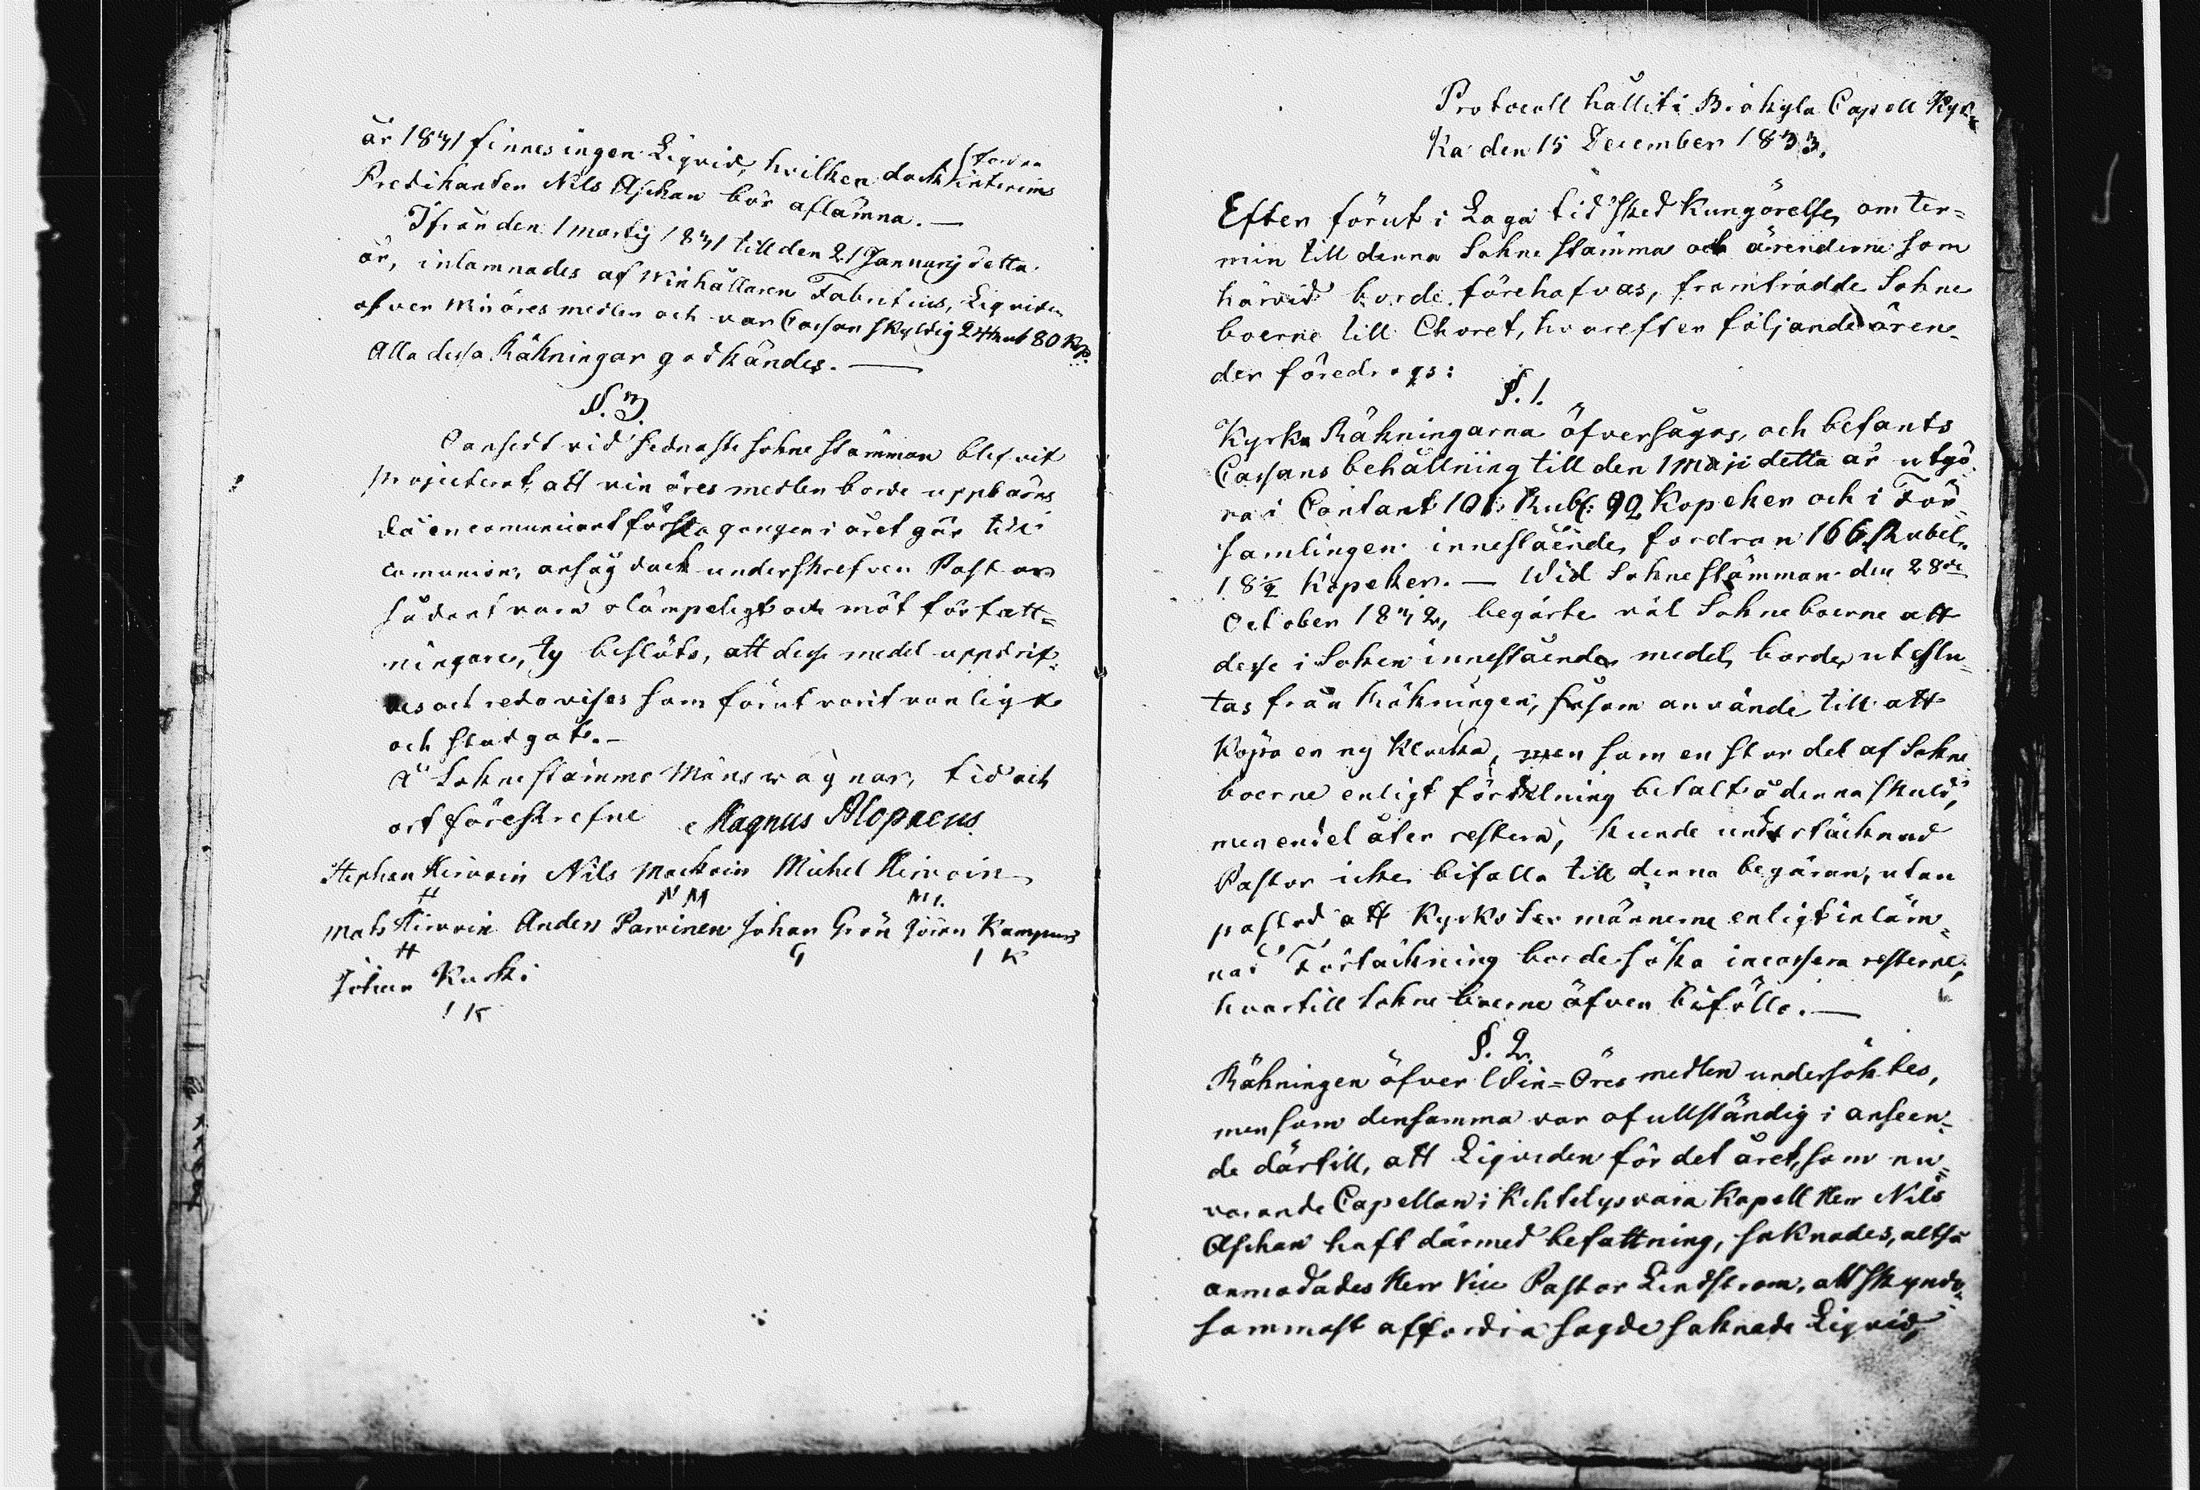 år 1831 finnes ingen Liqvid, hvilken dock förra interims
Predikanten Nils Aschan bör aflämna. —
Ifrån den 1 martij 1831 till den 21 Januarij detta
år, inlamnades af Winhållaren Fabritius, Liqviden
öfver Winöres medlen och var Cassan skyldig 24 80 Kop.
Alla dessa Räkningar godkändes. —
§. 3.
Oansedt vid sednaste sokne stämman blefvit
projecterat, att vin öres medlen borde uppbäras
då en comunicant första gången i året går till
comunion, ansåg dock underskrefven Pastor
sådant vara olämpeligt och mot författ=
ningare, ty beslöts, att desse medel uppdrif-
ves och redovises som förut varit vanligt
och stadgat. —
År Sokne stämma Måns wägnar, tid och
ort föreskrefne Magnus Alopaeus
Stephan Hirvoin Nils Mackoin Michel Hirvoin
H NM MH.
Mats Hirvoin Anders Parvinen Johan Grön Jöran Kampurs
H G I K
Johan Kuski
I K
Protocoll hållit i Bråkyla Capell Kyr-
ka den 15 December 1833.
Efter förut i Laga tid sked Kungörelse, om ter=
min till denna Sokne stämma och ärenderne som
härvid borde förehafvas, framträdde Sokne
boerne till Choret, hvarefter följande ären-
der föredrogs:
§. 1.
Kyrko Räkningarna öfversågos, och befants
Cassans behållning till den 1 maji detta år utgö-
ra i Contant 101 Rubl: 92 Kopeken och i För-
samlingen innestående fordran 166 Rubel
18½ Kopeker. — Wid Sokne stämman den 28de
October 1832, begärte väl Sokneboerne att
desse i Soknen innestående medel, borde uteslu-
tas från Räkningen, såsom använde till att
Köpa en ny Klocka, men som en stor del af Sokne
boerne enligt fördelning betalt å denna skuld,
men en del åter restera, kunde undertecknad
Pastor icke bifalla till denna begäran, utan
påstod att Kyrko Sex männerne enligt inläm-
nad Förtäckning borde söka incassera resterne,
hvartill Sokne boerne äfven biföllo. —
§. 2.
Räkningen öfver Win=Öres medlen undersöktes,
men som densamma var ofullständig i anseen-
de därtill, att Liqviden för det året, som nu-
varande Capellan i Kihtelysvaara Kapell Herr Nils
Aschan haft därmed befattning, saknades, altså
anmodades Herr Vice Pastor Lindstrom, att skynd-
sammast affordra sagde saknade Liqvid,